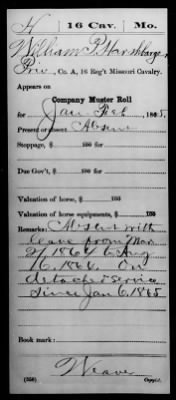 H 16 Cav. Mo.
William P. Harshbarger
Priv., Co. A, 16 Reg't Missouri Cavalry.
Appears on
Company Muster Roll
for Jan & Feb, 1865.
Present or absent Absent
Stoppage, $ 100 for
Due Gov't, $ 100 for
Valuation of horse, $ 100
Valuation of horse equipments, $ 100
Remarks: Absent with
leave from Nov
2/1864 to
16 1864. On
detached service
since Jan 6, 1865
Book mark:
Weaver
(356) Copyist.